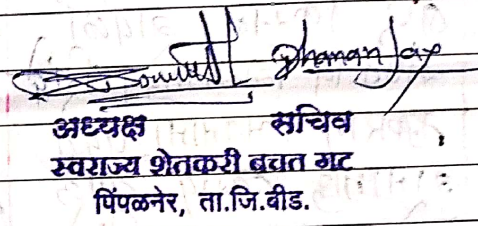 Dhananjay
अध्यक्ष सचिव
स्वराज्य शेतकरी बचत गट
पिंपळनेर, ता.जि.बीड.